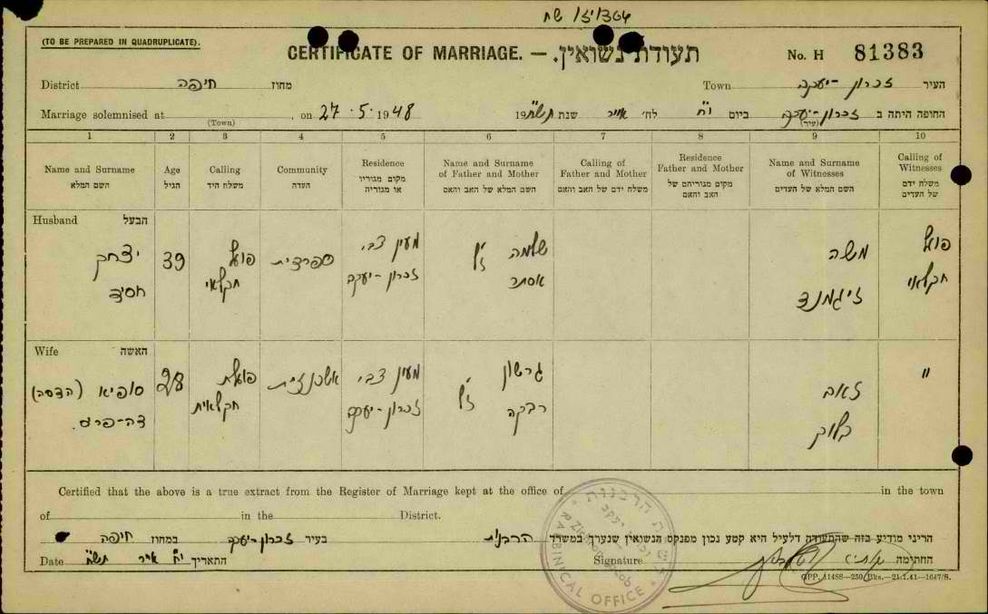 שח /ז'/364
(TO BE PREPARED IN QUADRUPLICATE).
CERTIFICATE OF MARRIAGE. — תעודת נשואין. No. H 81383
District חיפה מחוז Town זכרון-יעקב העיר
Marriage solemnised at , on 27.5.1948 19 תש"ח שנת אייר לח' י"ח ביום זכרון-יעקב החופה היתה ב
(Town) (עיר)
1 2 3 4 5 6 7 8 9 10
Name and Surname Age Calling Community Residence Name and Surname of Father and Mother Calling of Father and Mother Residence Father and Mother Name and Surname of Witnesses Calling of Witnesses
השם המלא הגיל משלח היד העדה מקום מגוריו או מגוריה השם המלא של האב והאם משלח ידם של האב והאם מקום מגוריהם של האב והאם השם המלא של העדים משלח ידם של העדים
Husband הבעל
יצחק 39 פועל ספרדית מעין צבי, שלמה ז"ל משה פועל
חסיד חקלאי זכרון-יעקב אסתר זיגמונד חקלאי
Wife האשה
סופיא (הדסה) 28 פועלת אשכנזית מעין צבי, גרשון ז"ל זאב "
דה-פריס. חקלאית זכרון-יעקב רבקה בלוך
Certified that the above is a true extract from the Register of Marriage kept at the office of in the town
of in the District.
הריני מודיע בזה שהתעודה דלעיל היא קטע נכון מפנקס הנשואין שנערך במשרד הרבנות בעיר זכרון-יעקב במחוז חיפה
Date י"ח אייר תש"ח התאריך Signature החתימה
RABBINICAL OFFICE
GPP. 11488—250 Bks.—21.1.41—1647/S.